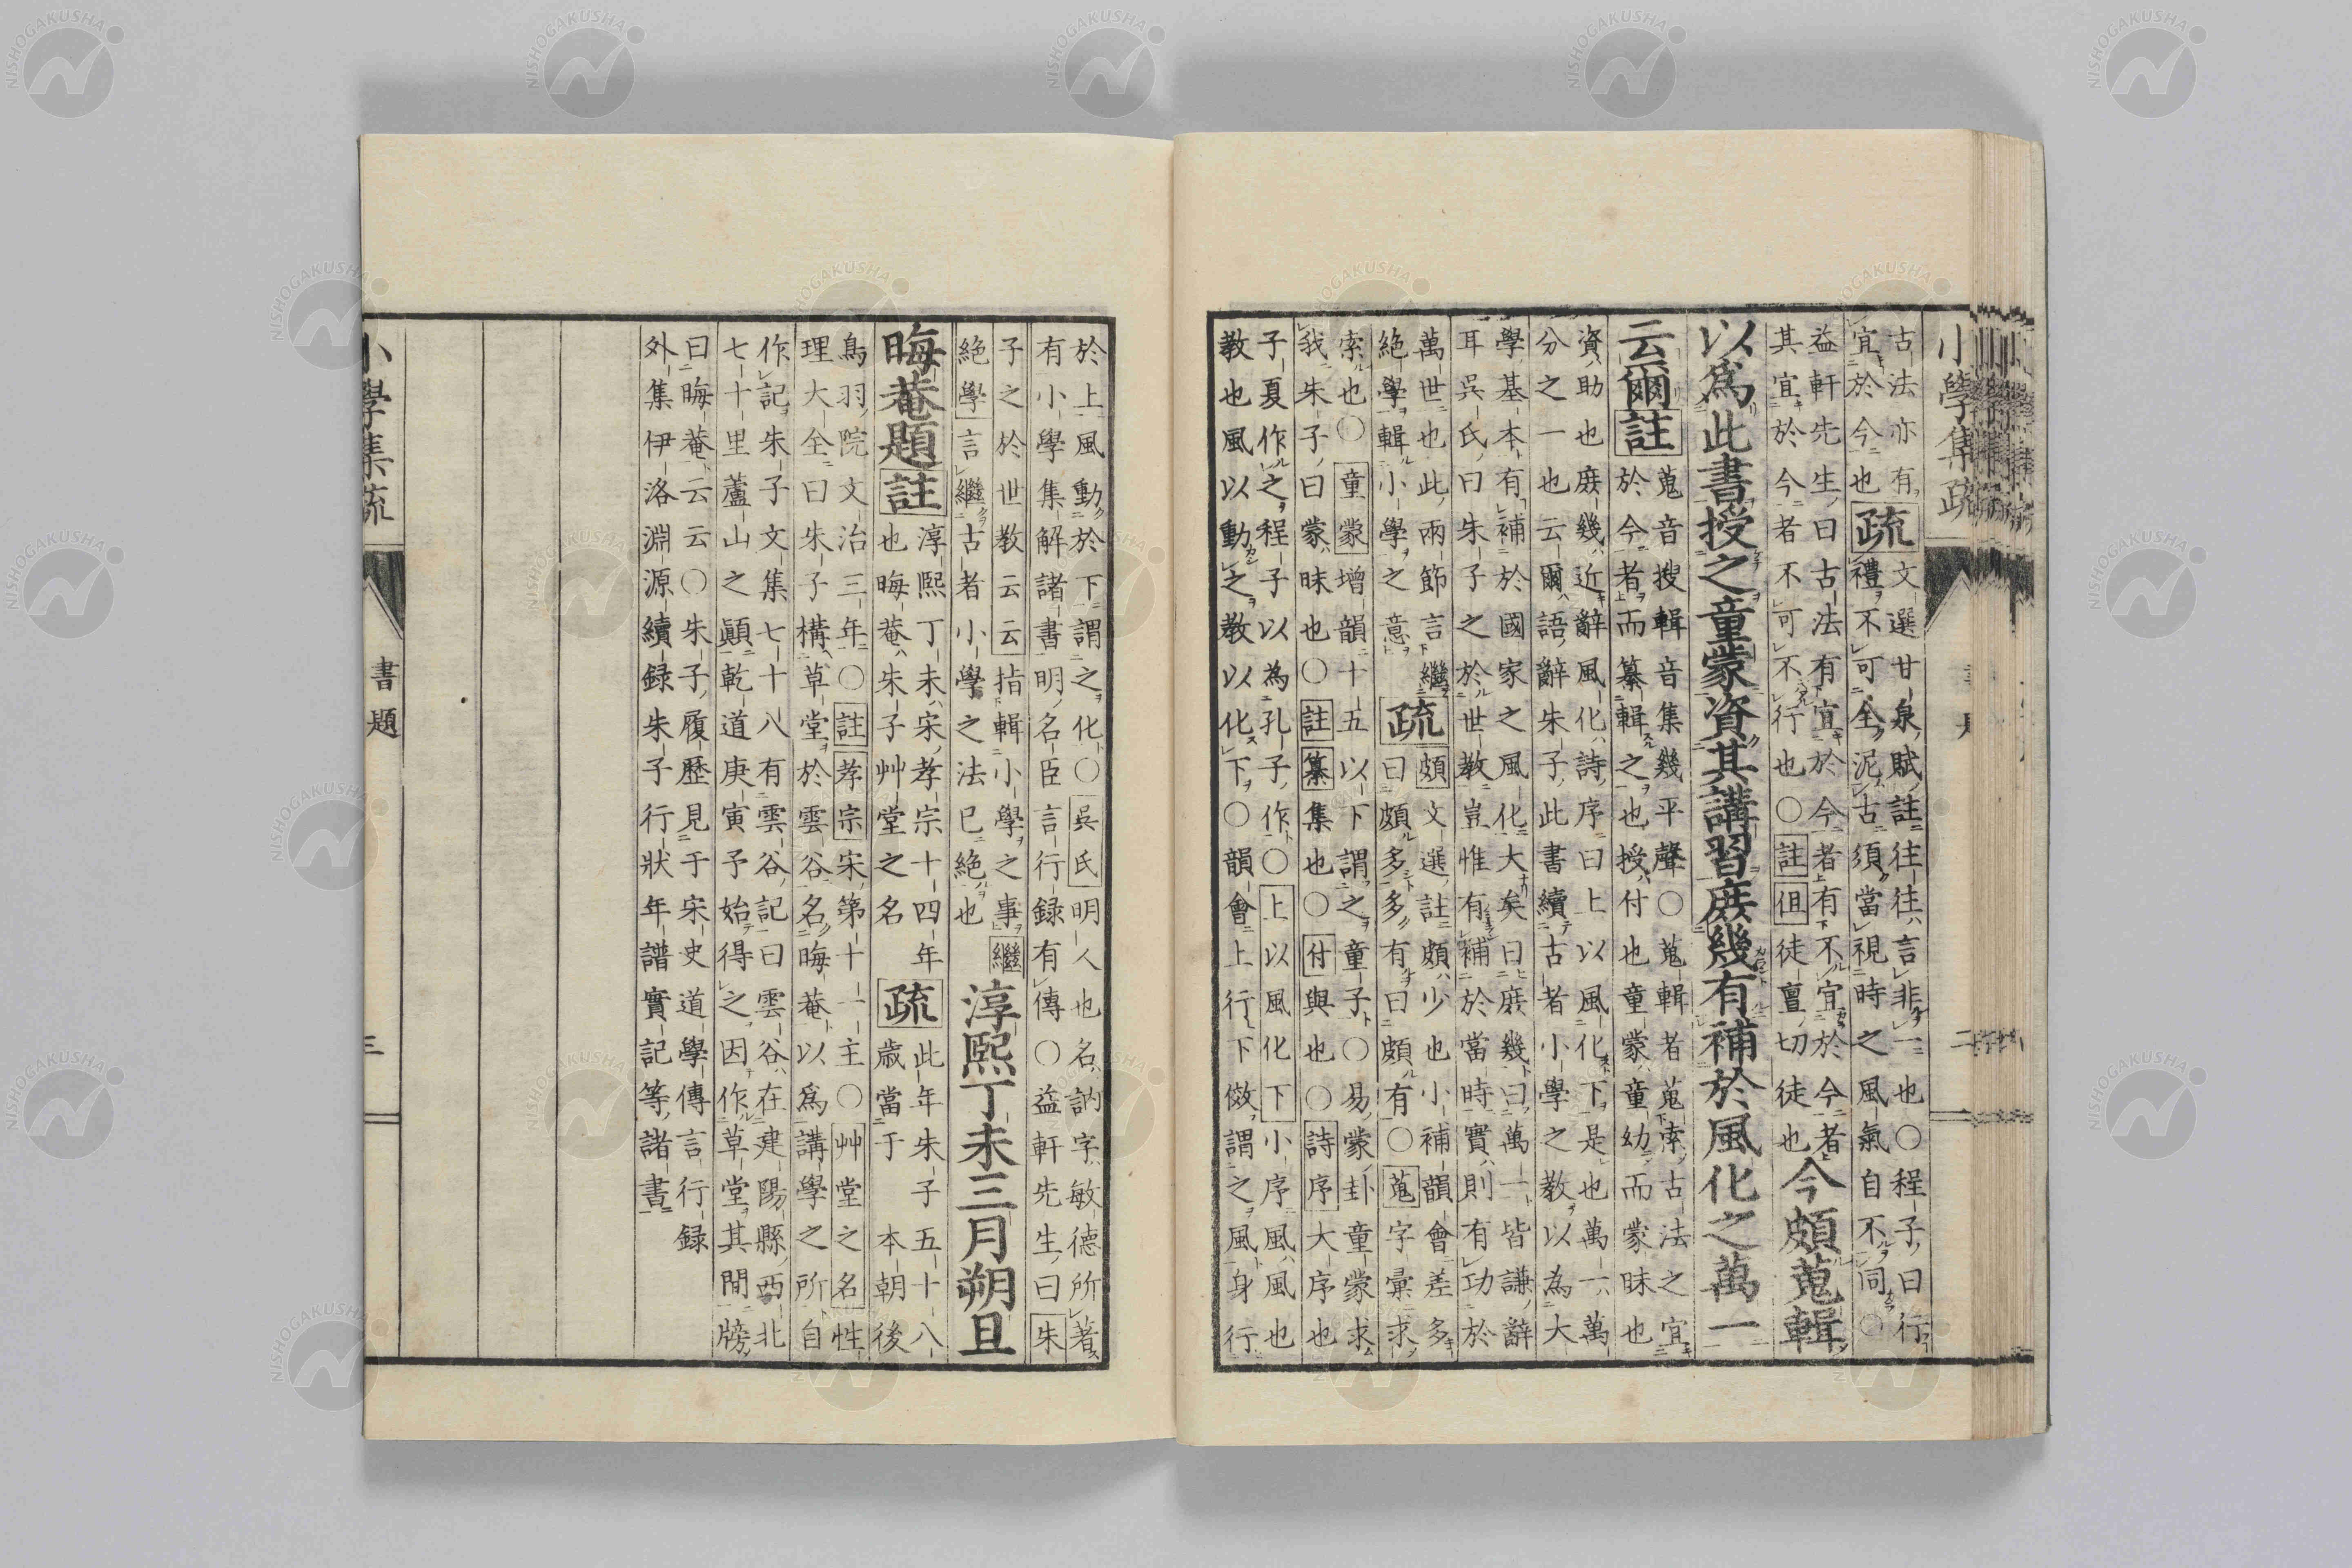 小學集疏
二
古法亦有
宜於今也
疏
文選甘泉賦註往往言非一也〇程子曰行
禮不可全泥古須當視時之風氣自不同〇
益軒先生曰古法有宜於今者有不宜於今者
其宜於今者不可不行也〇註但徒亶切徒也
今頗蒐輯
以爲此書授之童蒙資其講習庶幾有補於風化之萬一
云爾註
蒐音搜輯音集幾平聲〇蒐輯者蒐索古法之宜
於今者而纂輯之也授付也童蒙童幼而蒙昧也
資助也庶幾近辭風化詩序曰上以風化下是也萬一萬
分之一也云爾語辭朱子此書續古者小學之教以為大
學基本有補於國家之風化大矣曰庶幾曰萬一皆謙辭
耳吳氏曰朱子之於世教豈惟有補於當時實則有功於
萬世也此兩節言繼
絶學輯小學之意
疏
頗文選註頗少也小補韻會差多
曰頗多多有曰頗有〇蒐字彙求
索也〇童蒙增韻十五以下謂之童子〇易蒙卦童蒙求
我朱子曰蒙昧也〇註纂集也〇付與也〇詩序大序也
子夏作之程子以為孔子作〇上以風化下小序風風也
教也風以動之教以化下〇韻會上行下傚謂之風身行
於上風動於下謂之化〇吳氏明人也名訥字敏德所著
有小學集解諸書明名臣言行録有傳〇益軒先生曰朱
子之於世教云云指輯小學之事繼
絶學言繼古者小學之法已絶也
淳熙丁未三月朔旦
晦菴題註
淳熙丁未宋孝宗十四年
也晦菴朱子艸堂之名
疏
此年朱子五十八
歲當于本朝後
鳥羽院文治三年〇註孝宗宋第十一主〇艸堂之名性
理大全曰朱子構草堂於雲谷名晦菴以爲講學之所自
作記朱子文集七十八有雲谷記曰雲谷在建陽縣西北
七十里蘆山之顚乾道庚寅予始得之因作草堂其間牓
曰晦菴云云〇朱子履歷見于宋史道學傳言行録
外集伊洛淵源續録朱子行狀年譜實記等諸書
小學集疏
書題
三
NISHOGAKUSHA